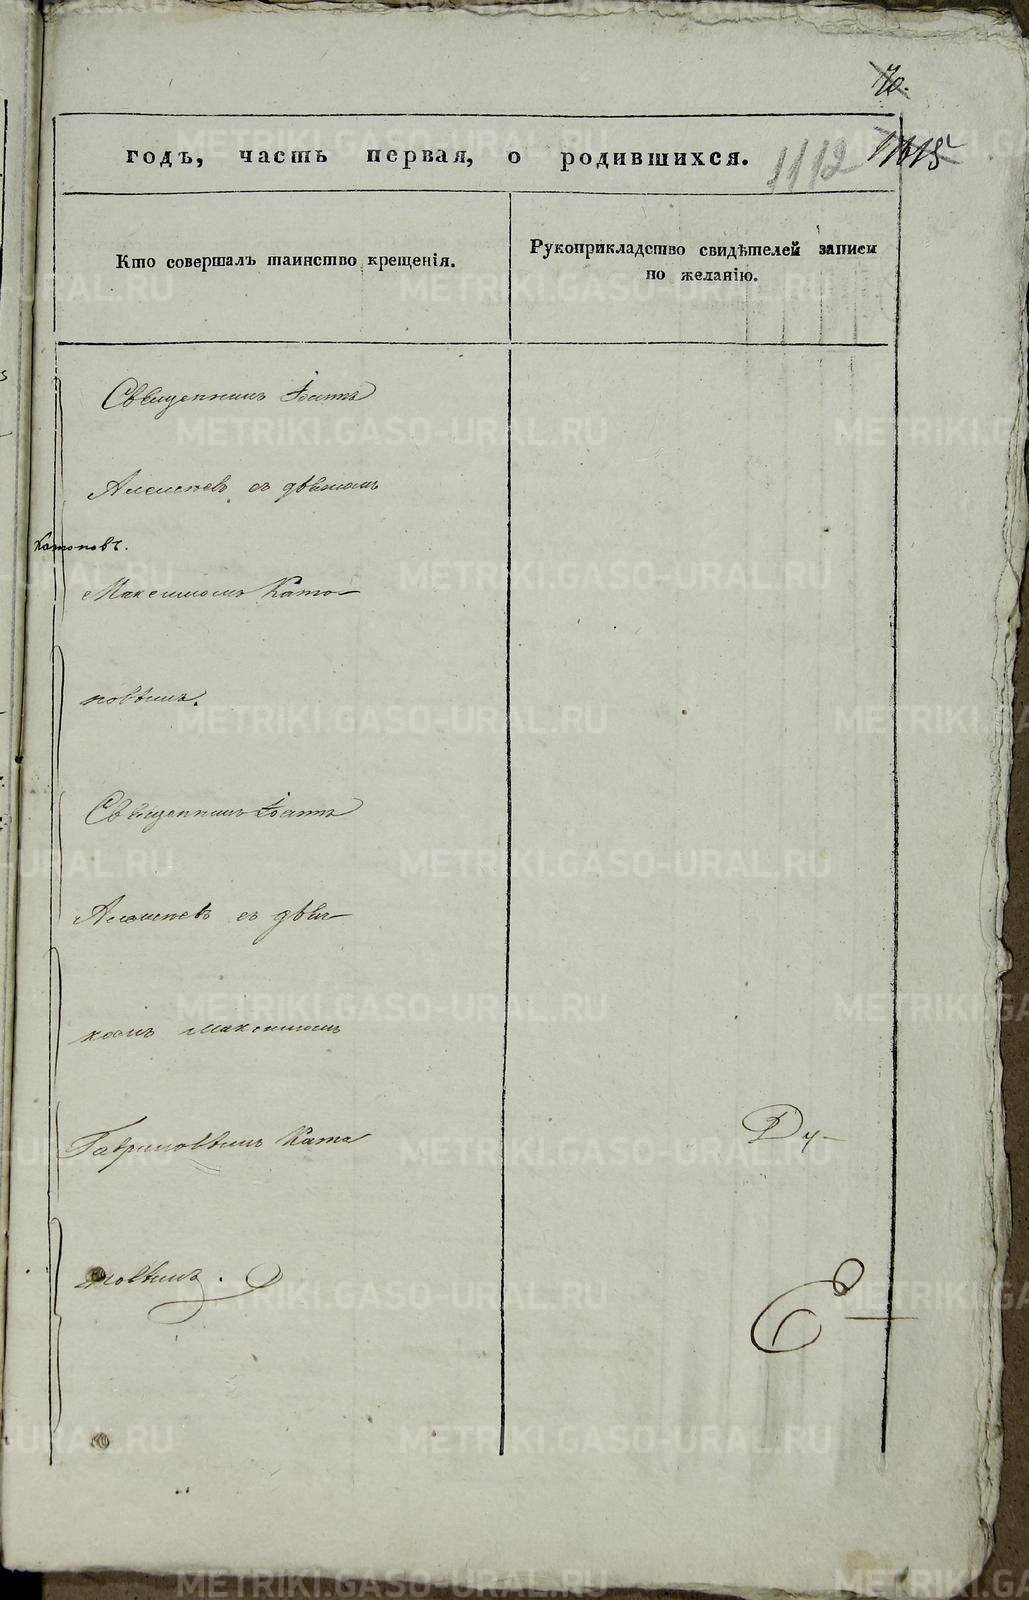 70.
годъ, часть первая, о родившихся.
1112
Кто совершалъ таинство крещенія.
Рукоприкладство свидѣтелей записи
по желанію.
Священникъ Іоаннъ
съ дьячкомъ
Катоповъ.
Максимомъ Като-
повымъ.
Священникъ Іоаннъ
съ дьяч-
комъ Максимомъ
Гавриловымъ Като
повымъ.
METRIKI.GASO-URAL.RU